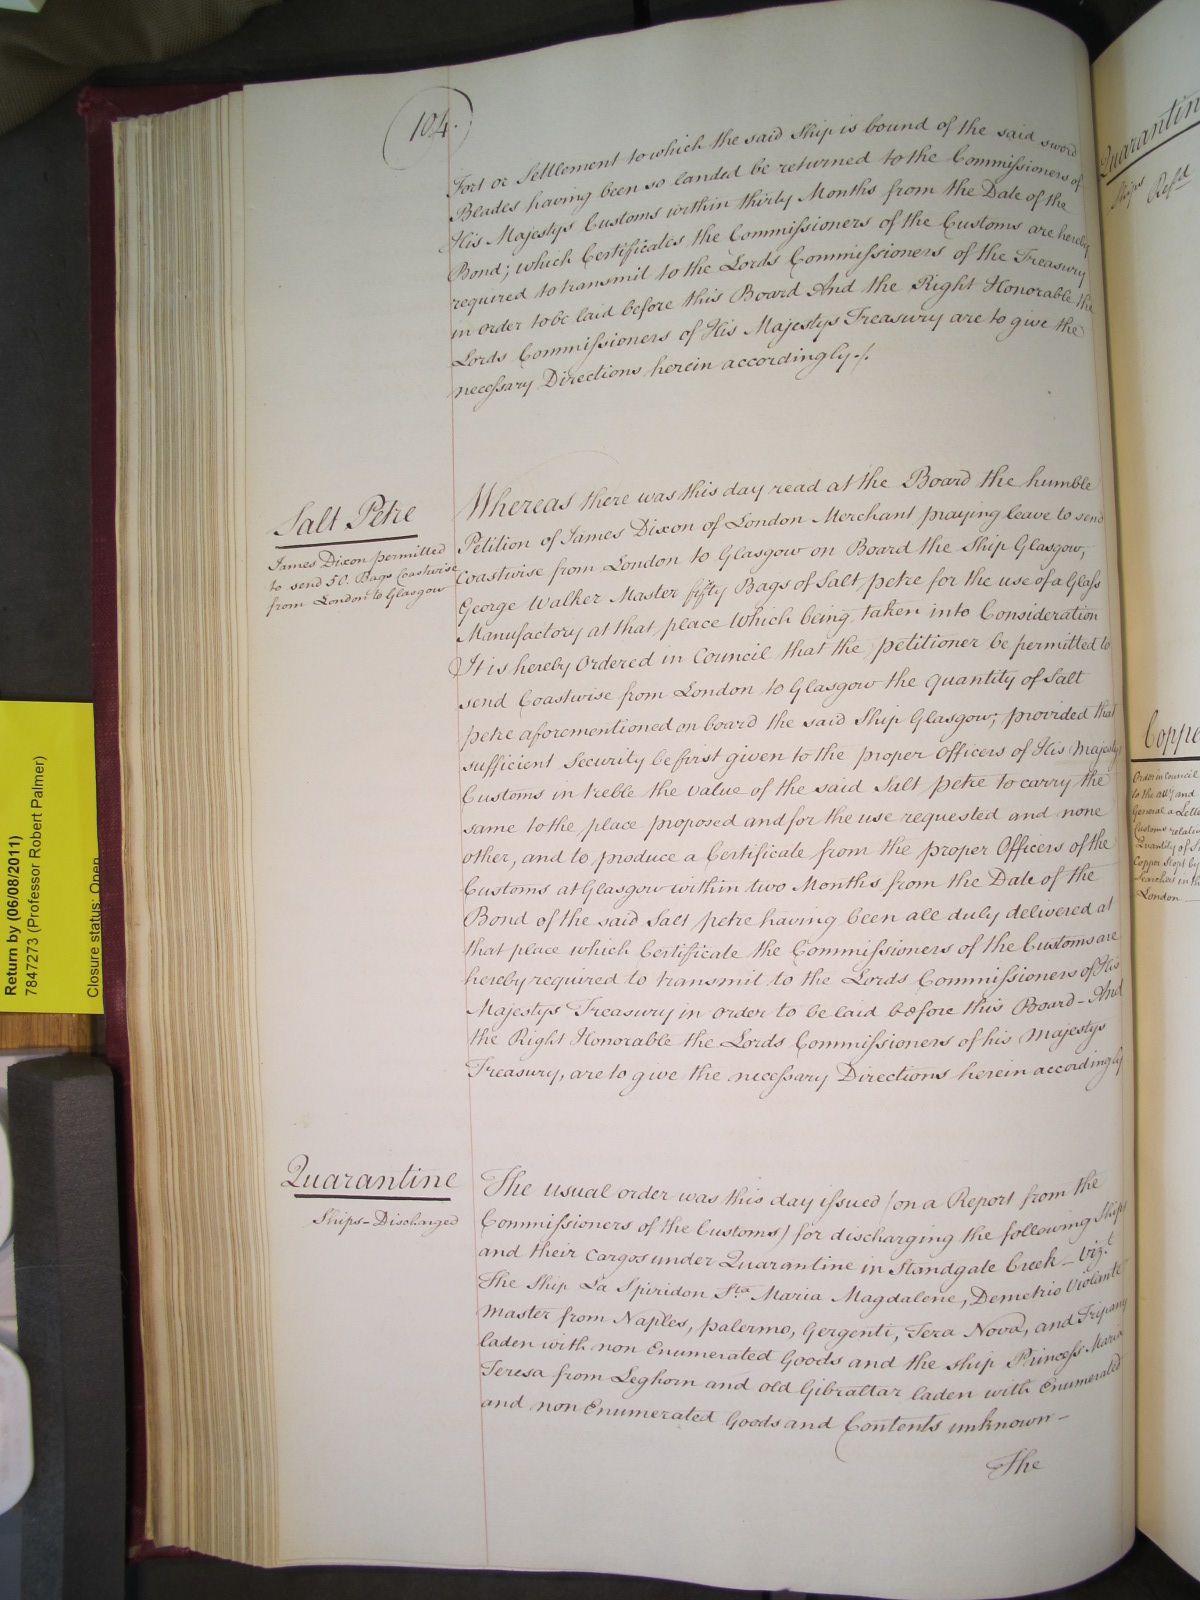 104.
Fort or Settlement to which the said Ship is bound of the said sword
Blades having been so landed be returned to the Commissioners of
His Majestys Customs within thirty Months from the Date of the
Bond; which Certificates the Commissioners of the Customs are hereby
required to transmit to the Lords Commissioners of the Treasury
in order to be laid before this Board And the Right Honorable the
Lords Commissioners of His Majestys Treasury are to give the
necessary Directions herein accordingly./.
Salt Petre
James Dixon permitted
to send 50. Bags Coastwise
from London to Glasgow
Whereas there was this day read at the Board the humble
Petition of James Dixon of London Merchant praying leave to send
Coastwise from London to Glasgow on Board the Ship Glasgow,
George Walker Master fifty Bags of Salt petre for the use of a Glass
Manufactory at that place Which being taken into Consideration
It is hereby Ordered in Council that the petitioner be permitted to
send Coastwise from London to Glasgow the quantity of Salt
petre aforementioned on board the said Ship Glasgow; provided that
sufficient Security be first given to the proper Officers of His Majestys
Customs in treble the value of the said Salt petre to carry the
same to the place proposed and for the use requested and none
other, and to produce a Certificate from the proper Officers of the
Customs at Glasgow within two Months from the Date of the
Bond of the said Salt petre having been all duly delivered at
that place which Certificate the Commissioners of the Customs are
hereby required to transmit to the Lords Commissioners of His
Majestys Treasury in order to be laid before this Board - And
the Right Honorable the Lords Commissioners of his Majestys
Treasury, are to give the necessary Directions herein accordingly
Quarantine
Ships - Discharged
The usual order was this day issued (on a Report from the
Commissioners of the Customs) for discharging the following Ships
and their Cargos under Quarantine in Standgate Creek - Vizt
The Ship La Spiridon Sta Maria Magdalene, Demetrio Violante
Master from Naples, palermo, Gergenti, Tera Nova, and Tripany
laden with non Enumerated Goods and the ship Princess Maria
Teresa from Leghorn and old Gibraltar laden with Enumerated
and non Enumerated Goods and Contents unknown -
The
Return by (06/08/2011)
7847273 (Professor Robert Palmer)
Closure status: Open
Quarantin
Ships Relsd
Coppe
Order in Council
to the Atty and
General a Lette
Customs relati
Quantity of
Copper stopt by
Searchers in th
London